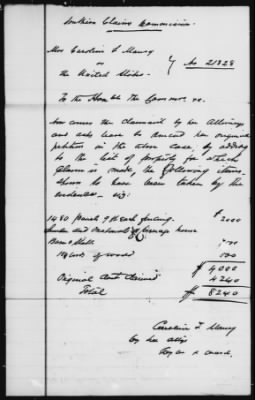 Southern Claims Commission.
Mrs Caroline F Maury
vs
the United States.
No 21828
To the Honble the Commrs. &c.
Now comes the claimant by her Attorneys
and asks leave to amend her original
petition in the above case, by adding
to the list of property for which
claim is made, the following items
shown to have been taken by the
evidence. viz:
1480 of Oak fencing. $ 2000
Lumber and Materials of house
Barn & Stable
of wood 500
$ 4000
Original Amt Claimed 4240
Total $ 8240
Caroline F Maury
by her attys